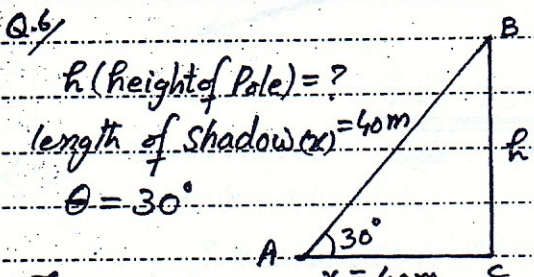 Q.6/
h (height of Pole) = ?
length of shadow (x) = 40m
θ = 30°
B
h
A
30°
x = 40m
C